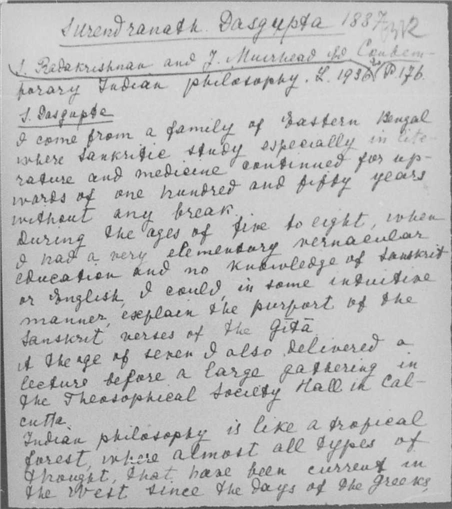 Surendranath Dasgupta 1887
S. Radakrishnan and J. Muirhead Contem-
porary Indian philosophy. L. 1936 P 176.
S. Dasgupta
I come from a family of Eastern Bengal
where Sankritic study especially in lite-
rature and medicine continued for up-
words of one hundred and fifty years
without any break.
During the ages of five to eight, when
I had a very elementary vernacular
education and no knowledge of Sanskrit
or English, I could, in some intuitive
manner, explain the purport of the
Sanskrit verses of the Gitā
At the age of seven I also delivered a
lecture before a large gathering in
the Theosophical Society Hall in Cal-
cutta.
Indian philosophy is like a tropical
forest, where almost all types of
thought, that have been current in
the West since the days of the Greeks,